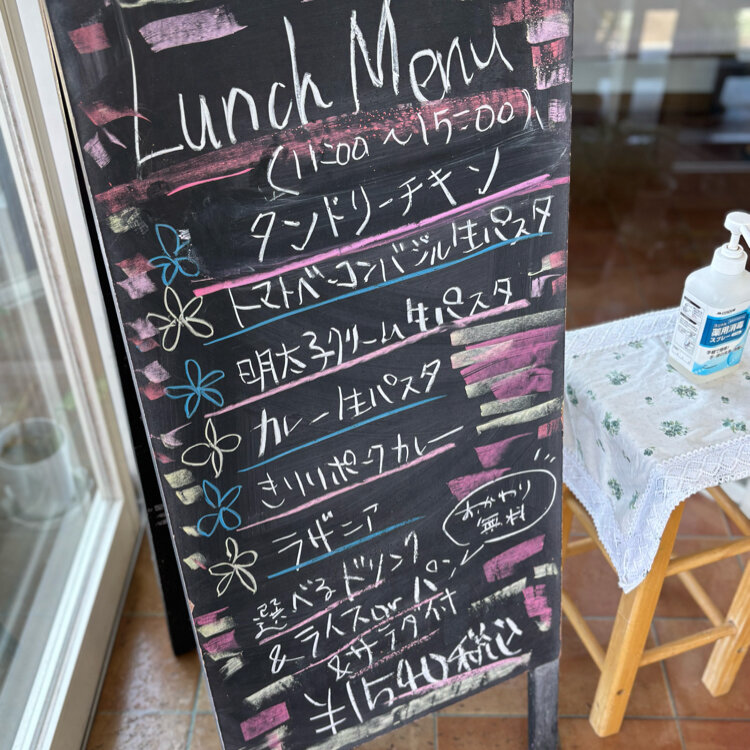 Lunch Menu
(11:00〜15:00)
タンドリーチキン
トマトベーコンバジル生パスタ
明太子クリーム生パスタ
カレー生パスタ
きりりポークカレー
ラザニア
おかわり
無料
選べるドリンク
&ライスorパン
&サラダ付
¥1540税込
薬用消毒
スプレー